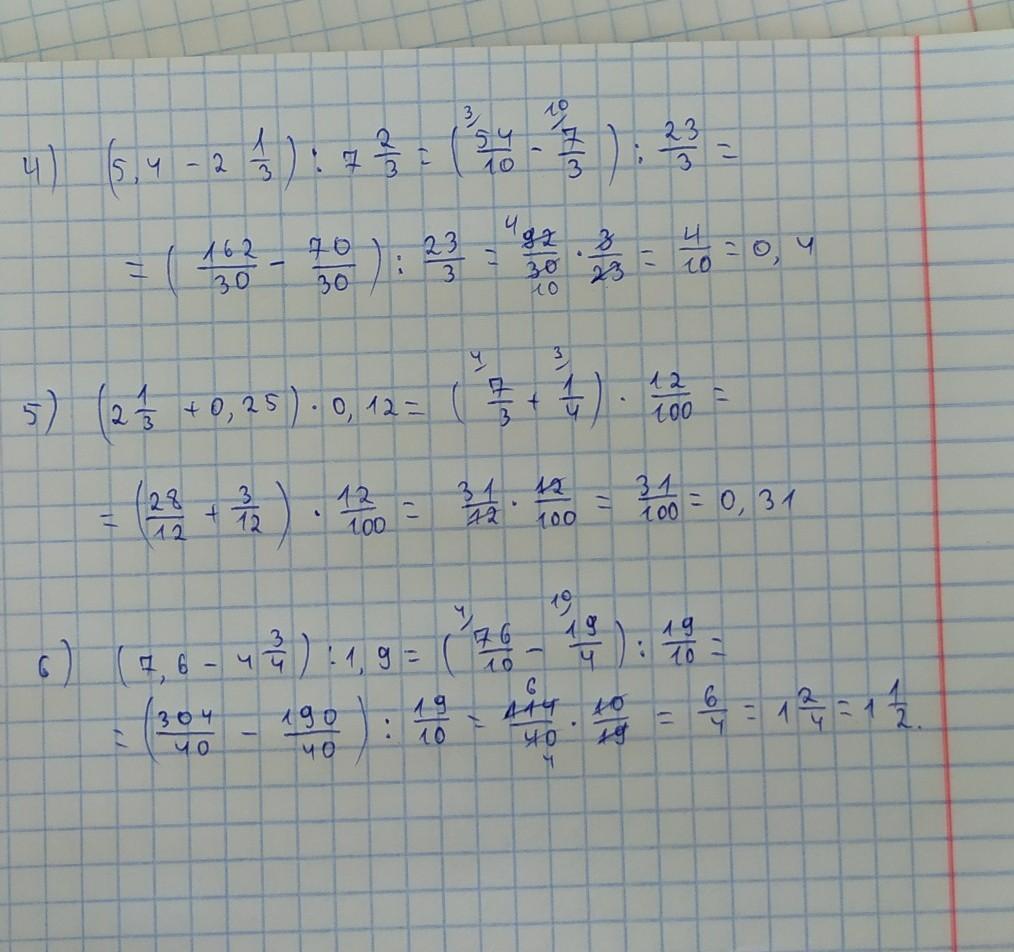 4) (5,4 - 2 1/3) : 7 2/3 = (54/10 ³⁾ - 7/3 ¹⁰⁾) : 23/3 =
= (162/30 - 70/30) : 23/3 = 92/30 · 3/23 = 4/10 = 0,4
5) (2 1/3 + 0,25) · 0,12 = (7/3 ⁴⁾ + 1/4 ³⁾) · 12/100 =
= (28/12 + 3/12) · 12/100 = 31/12 · 12/100 = 31/100 = 0,31
6) (7,6 - 4 3/4) : 1,9 = (76/10 ⁴⁾ - 19/4 ¹⁰⁾) : 19/10 =
= (304/40 - 190/40) : 19/10 = 114/40 · 10/19 = 6/4 = 1 2/4 = 1 1/2.